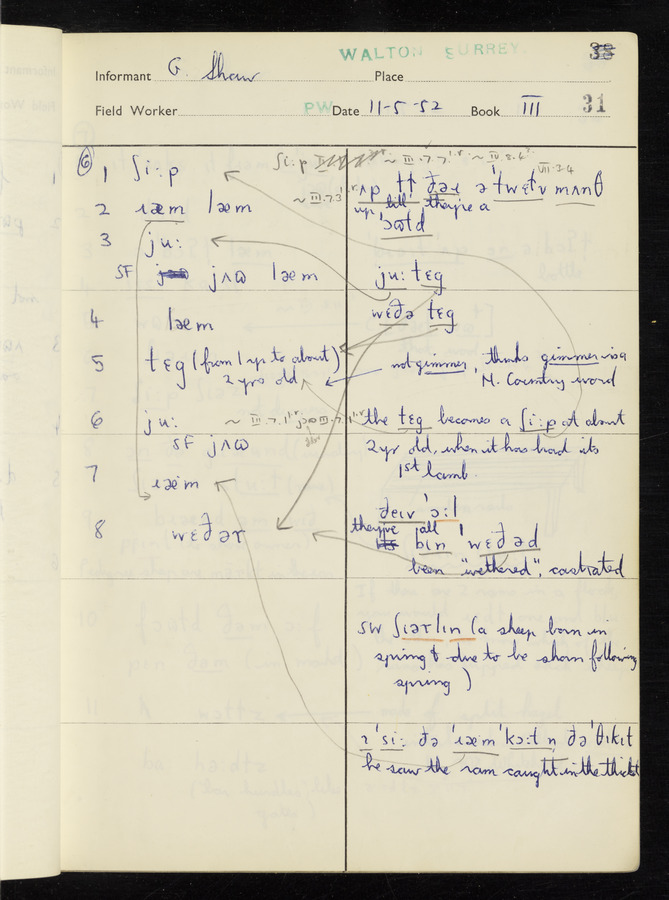 WALTON SURREY
Informant G. Shaw Place
33
Field Worker PW Date 11-5-52 Book III 31
6
1 ʃiːp
ʃiːp ~ III.7.7 ~ IV.8.4
VII.3.4
2 ɹæm læm
~ III.7.3
up till they're a
3 juː
SF jʌɷ læm
juː tɛg
4 læm
wɛðə tɛg
5 tɛg (from 1 yr to about)
2 yrs old
not gimmer, thinks gimmer is a
N. Country word
6 juː
SF jʌɷ
the tɛg becomes a ʃiːp at about
2 yr old, when it has had its
1st lamb.
7 ɹæm
ðeɪv ˈɔːl
they've all
8 wɛðəɾ
bɪn ˈwɛðəd
been "wethered", castrated
SW ʃɪəɾlɪn (a sheep born in
spring & due to be shorn following
spring)
ɪ ˈsiː ðə ˈɹæm ˈkɔːt n ðə ˈθɪkɪt
he saw the ram caught in the thicket